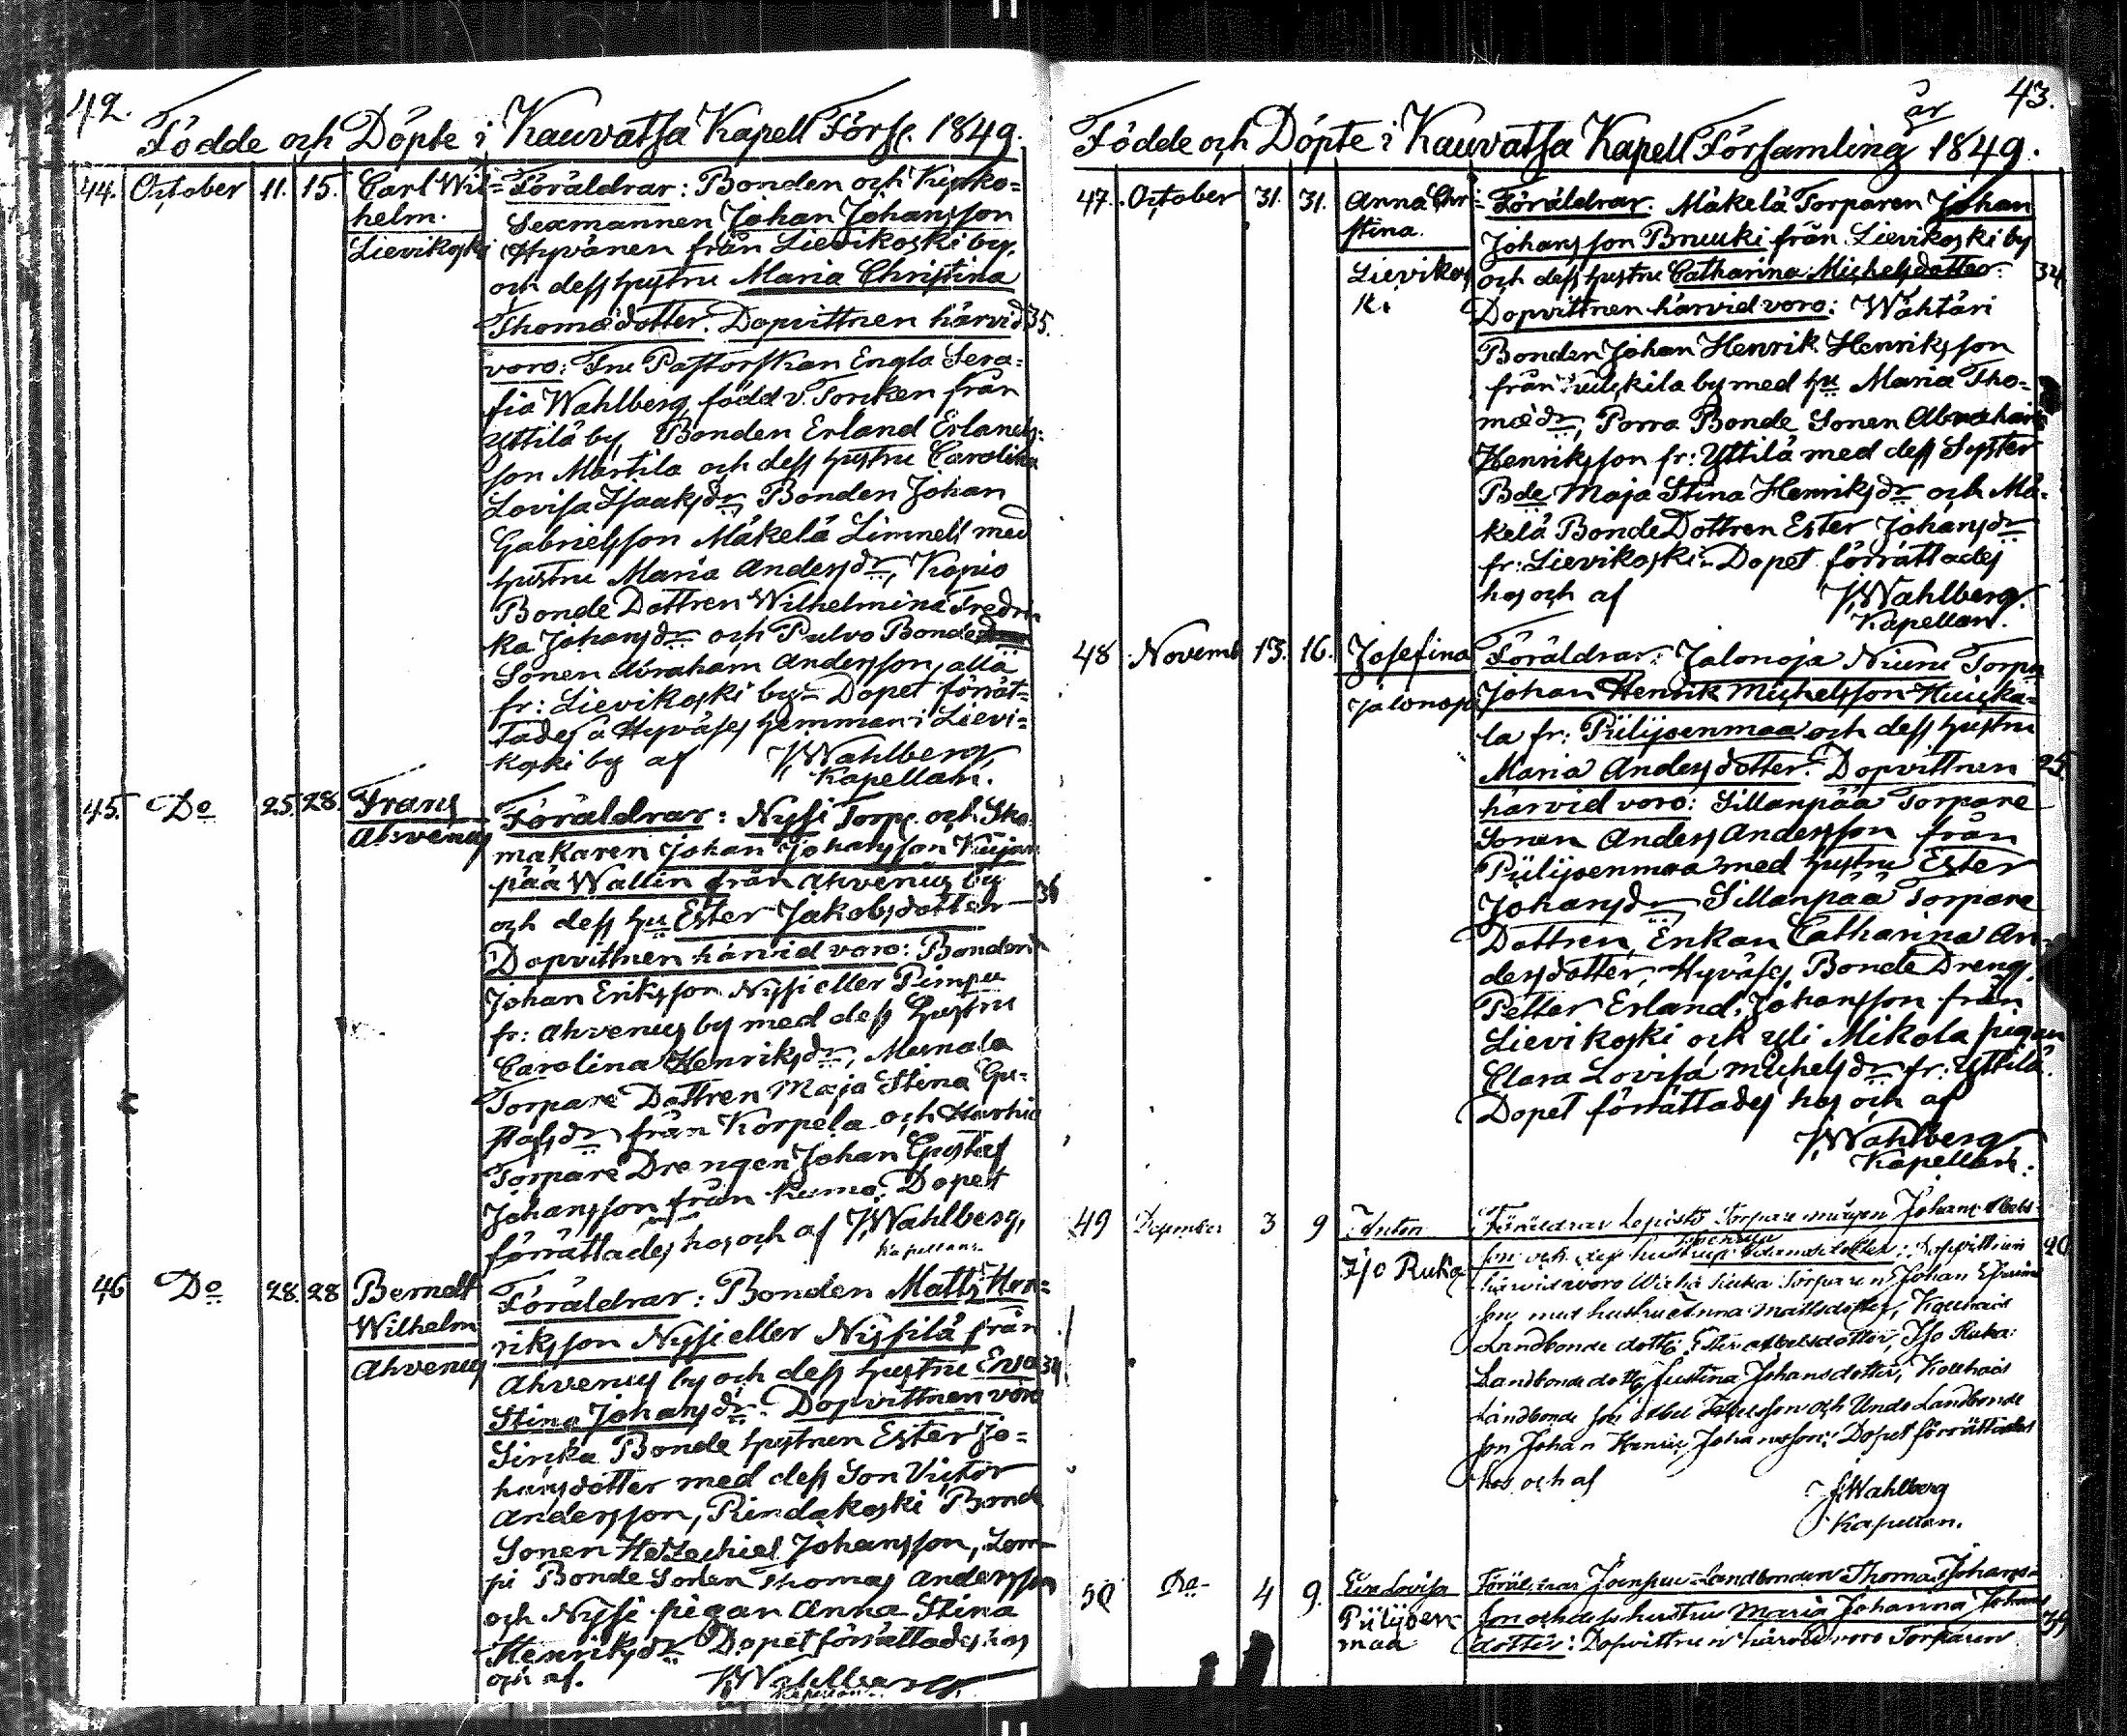 42.
Födde och Döpte i Kauvatsa Kapell Förs. 1849.
44. October 11. 15. Carl Wil-
helm.
Lievikoski
Föräldrar: Bonden och Kyrko-
Sexmannen Johan Johansson
Hyvänen från Lievikoski by,
och dess hustru Maria Christina
Thomædotter. Dopvittnen härvid 35.
voro: Fru Pastorskan Engla Sera-
fia Wahlberg, född v. Torcken från
Yttilä by, Bonden Erland Erlands-
son Märtila och dess hustru Carolina
Lovisa Isaaksdr, Bonden Johan
Gabrielsson Mäkelä Limnell med
hustru Maria Andersdr,
Bonde Dottren Wilhelmina Fredri-
ka Johansdr och Pulvo Bonde
Sonen Abraham Andersson, alla
fr: Lievikoski by. Dopet förrät-
tades å Hyväses hemman i Lievi-
koski by af J Wahlberg,
Kapellan.
45. Do 25. 28. Frans
Ahvenus
Föräldrar: Nysi Torp. och Sko-
makaren Johan Johansson Kujan
pää Wallin från Ahvenus by
och dess hu Ester Jakobsdotter 36
Dopvittnen härvid voro: Bonden
Johan Eriksson Nysi eller Pimpu
fr: Ahvenus by med dess Hustru
Carolina Henriksdr,
Torpare Dottren Maja Stina Gu-
stafsdr från Korpela och
Torpare Drengen Johan Gustaf
Johansson från Kumo. Dopet
förrättades hos och af J Wahlberg,
Kapellan.
46 Do 28. 28 Berndt
Wilhelm
Ahvenus
Föräldrar: Bonden Matts Hen-
riksson Nysi eller Nissilä från
Ahvenus by och dess hustru Eva 34
Stina Johansdr. Dopvittnen voro
Sirkka Bonde hustrun Ester Jo-
hansdotter med dess Son Victor
Andersson, Rindakoski Bonde
Sonen Hetzechiel Johansson, Lem-
pi Bonde Sonen Thomas Andersson
och Nysi pigan Anna Stina
Henriksdr Dopet förrättades hos
och af. J Wahlberg
Kapellan.
43.
Födde och Döpte i Kauvatsa Kapell Församling år 1849.
47. October 31. 31. Anna Chri-
stina.
Lievikos
ki
Föräldrar. Mäkelä Torparen Johan
Johansson Bruuki från Lievikoski by
och dess hustru Catharina Michelsdotter. 34
Dopvittnen härvid voro: Wähtäri
Bonden Johan Henrik Henriksson
från by med hu Maria Tho-
mædr, Porra Bonde Sonen Abraham
Henriksson fr: Yttilä med dess Syster
Bde Maja Stina Henriksdr och Mä-
kelä Bonde Dottren Ester Johansdr
fr: Lievikoski. Dopet förrättades
hos och af J Wahlberg.
Kapellan.
48 Novemb 13. 16. Josefina
Jalonoja
Föräldrar: Jalonoja Torpa
Johan Henrik Michelsson
la fr: Piilijoenmaa och dess hustru
Maria Andersdotter. Dopvittnen 25.
härvid voro: Sillanpää Torpare
Sonen Anders Andersson från
Piilijoenmaa med hustru Ester
Johansdr Sillanpää Torpare
Dottren, Enkan Catharina An-
dersdotter, Hyväses Bonde Dreng.
Petter Erland Johansson från
Lievikoski och Yli Mikola pigan
Clara Lovisa Michelsdr fr: Yttilä.
Dopet förrättades hos och af
J Wahlberg
Kapellan.
49 December 3 9 Anton
Iso Ruka
Föräldrar Lepistö Torpare mågen Johan Abels-
son och dess hustru Erlandsdotter: Dopvittnen 20
härvid voro Torparen Johan
son med hustru Anna Mattsdotter,
Landbonde dottr Ester Abelsdotter, Iso Ruka
Landbonde dottr Justina Johansdotter,
Landbonde son Abel och Landbonde
son Johan Henric Johansson: Dopet förrättades
hos och af
J Wahlberg
Kapellan.
50 Do 4 9. Eva Lovisa
Piilijoen
maa
Föräldrar Landbonden Thomas Johans-
son och dess hustru Maria Johanna Johans
dotter: Dopvittnen härvid voro Torparen